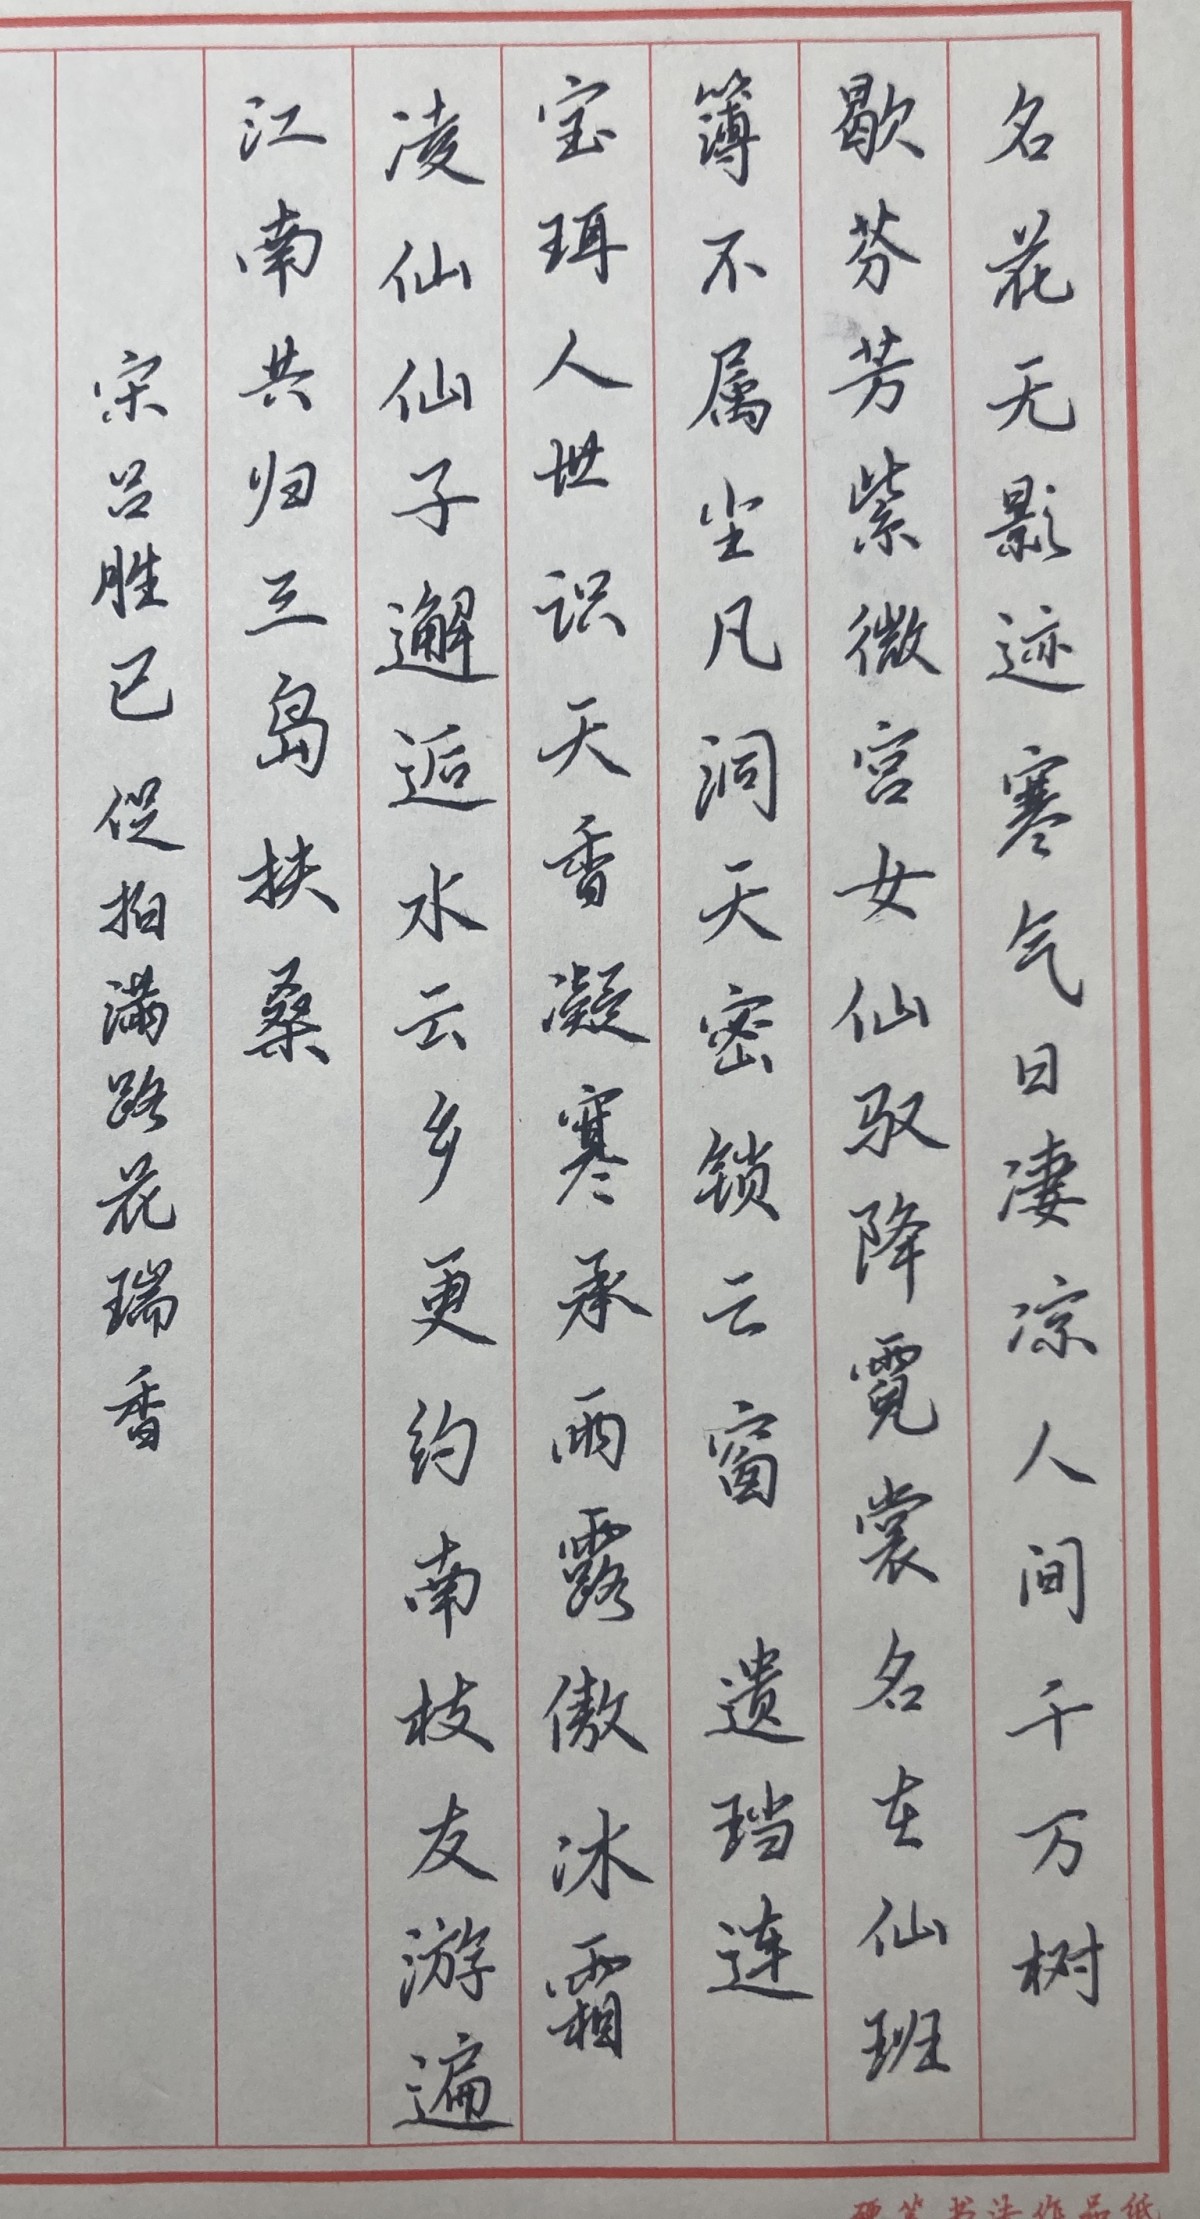 名花无影迹寒气日凄凉人间千万树
歇芬芳紫微宫女仙驭降霓裳名在仙班
簿不属尘凡洞天密锁云窗 遗珰连
宝珥人世识天香凝寒承雨露傲冰霜
凌仙仙子邂逅水云乡更约南枝友游遍
江南共归三岛扶桑
宋吕胜已促拍满路花瑞香
硬笔书法作品纸